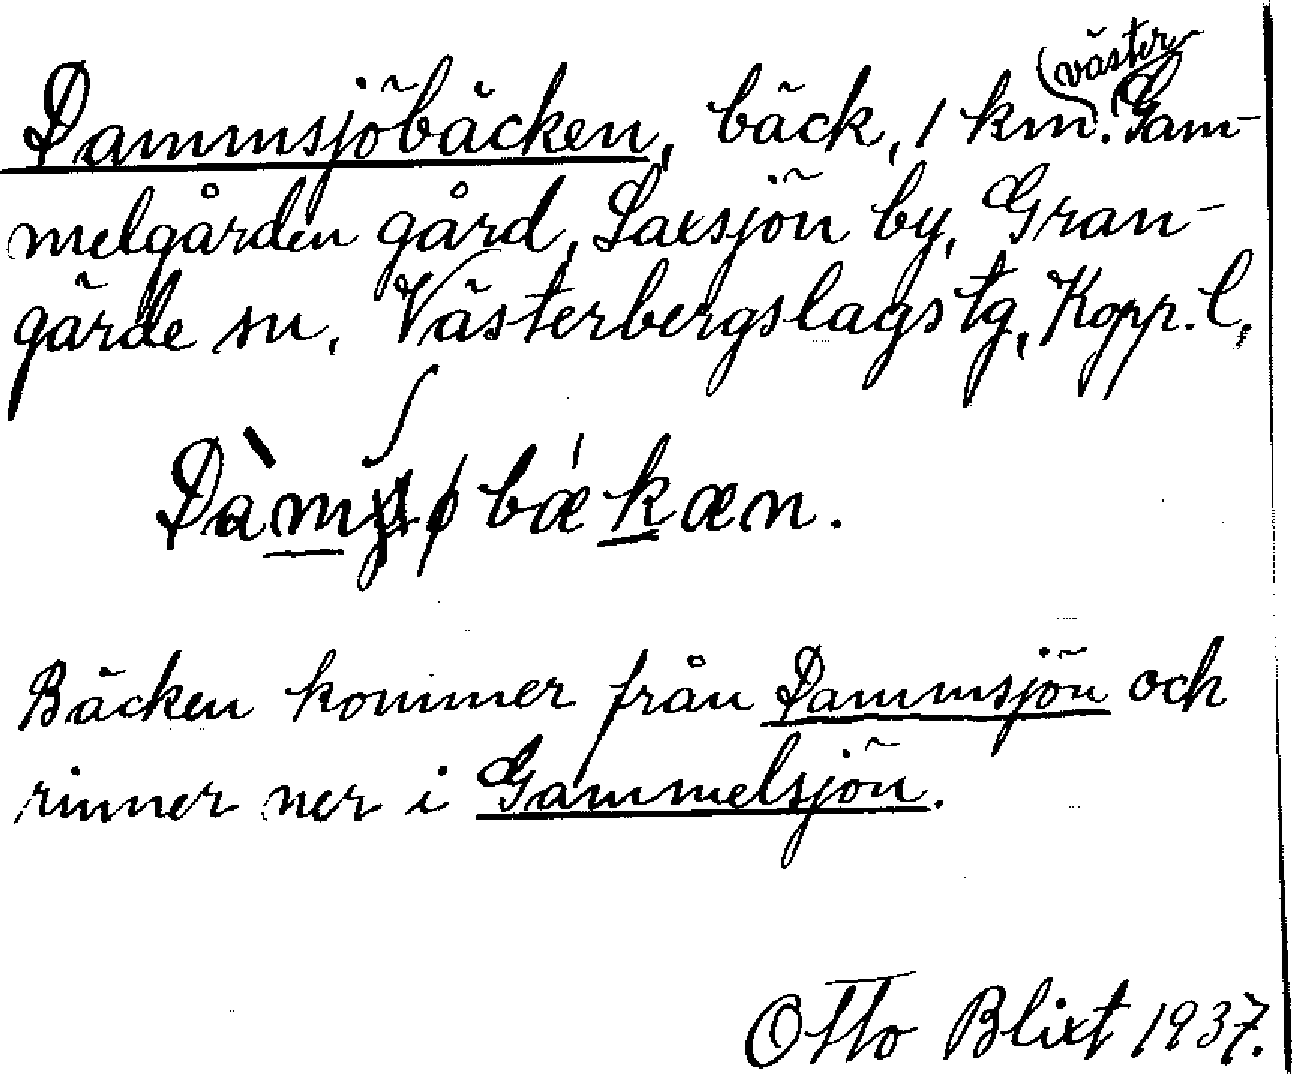 Dammsjöbäcken, bäck, 1 km. väster Gam-
melgården gård, Saxsjön by, Gran-
gärde sn. Västerbergslags tg, Kopp. l.
Dàmʃøbǽkæn.
Bäcken kommer från Dammsjön och
rinner ner i Gammelsjön.
Otto Blixt 1937.